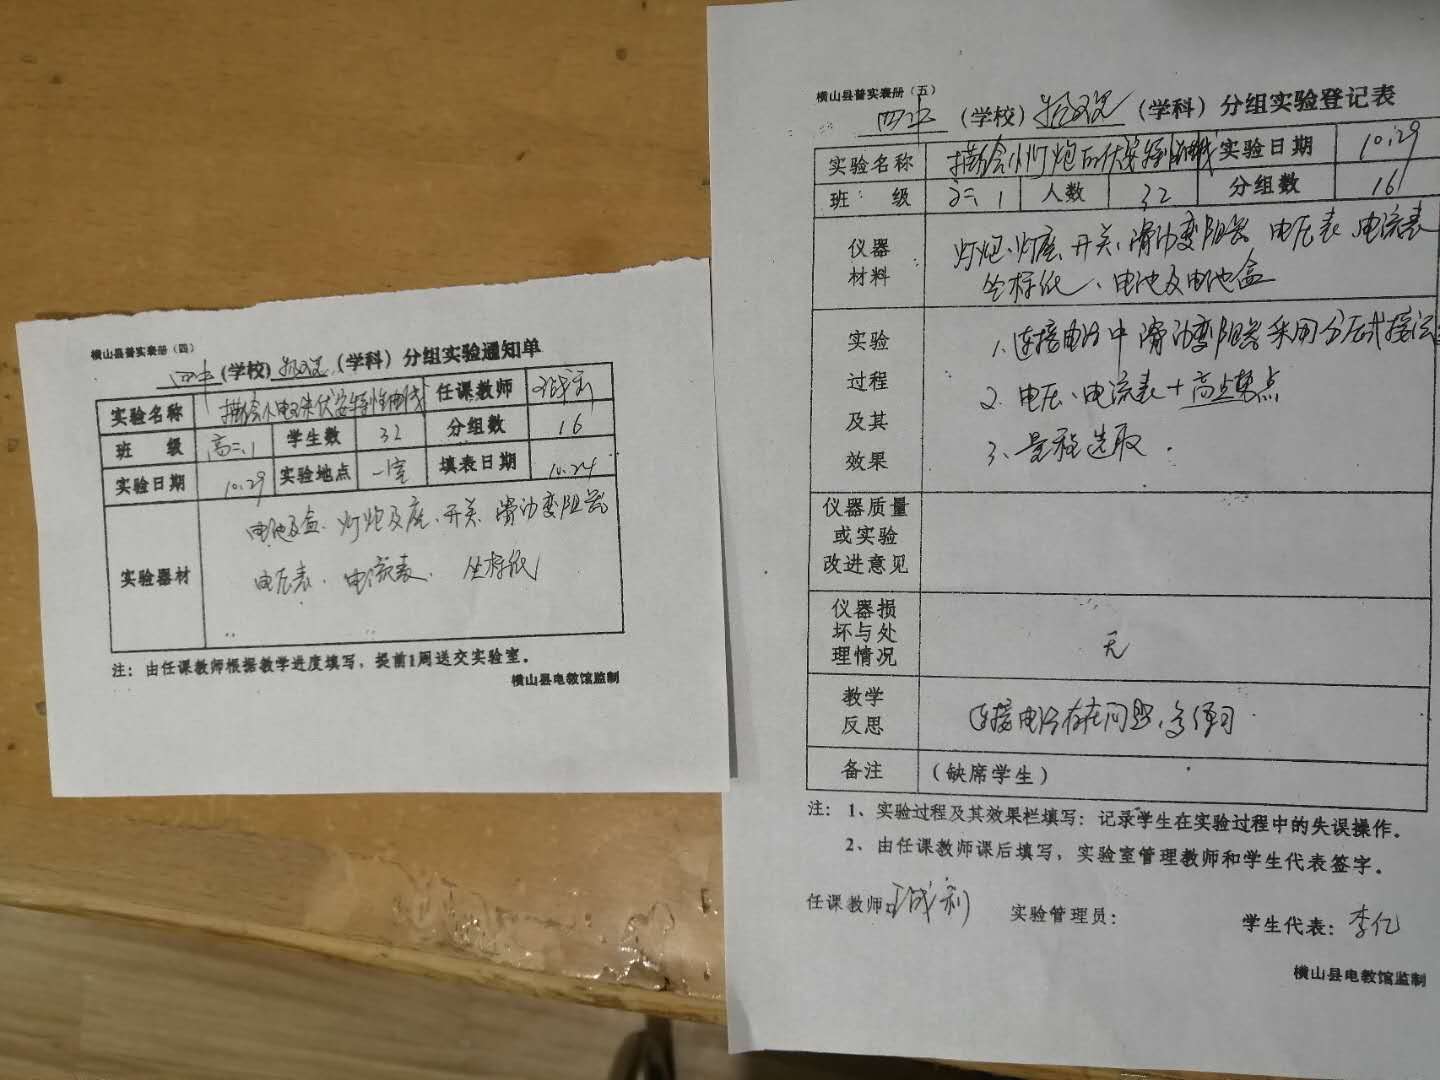 横山县普实表册（四）
四中（学校）物理（学科）分组实验通知单
实验名称 描绘小电珠伏安特性曲线 任课教师
班 级 高二.1 学生数 32 分组数 16
实验日期 10.29 实验地点 一室 填表日期 10.24
实验器材
电池及盒、灯炮及座、开关、滑动变阻器
电压表、电流表、坐标纸
注：由任课教师根据教学进度填写，提前1周送交实验室。
横山县电教馆监制
横山县普实表册（五）
四中（学校）物理（学科）分组实验登记表
实验名称 描绘小灯炮的伏安特性曲线 实验日期 10.29
班 级 高二.1 人数 32 分组数 16
仪器材料
灯炮、灯座、开关、滑动变阻器、电压表、电流表
坐标纸、电池及电池盒
实验过程及其效果
1、连接电路中滑动变阻器采用分压式接法
2、电压、电流表+
3、量程选取.
仪器质量或实验改进意见
仪器损坏与处理情况 无
教学反思 连接电路存在问题、多练习
备注（缺席学生）
注：1、实验过程及其效果栏填写：记录学生在实验过程中的失误操作。
2、由任课教师课后填写，实验室管理教师和学生代表签字。
任课教师： 实验管理员： 学生代表：李亿
横山县电教馆监制